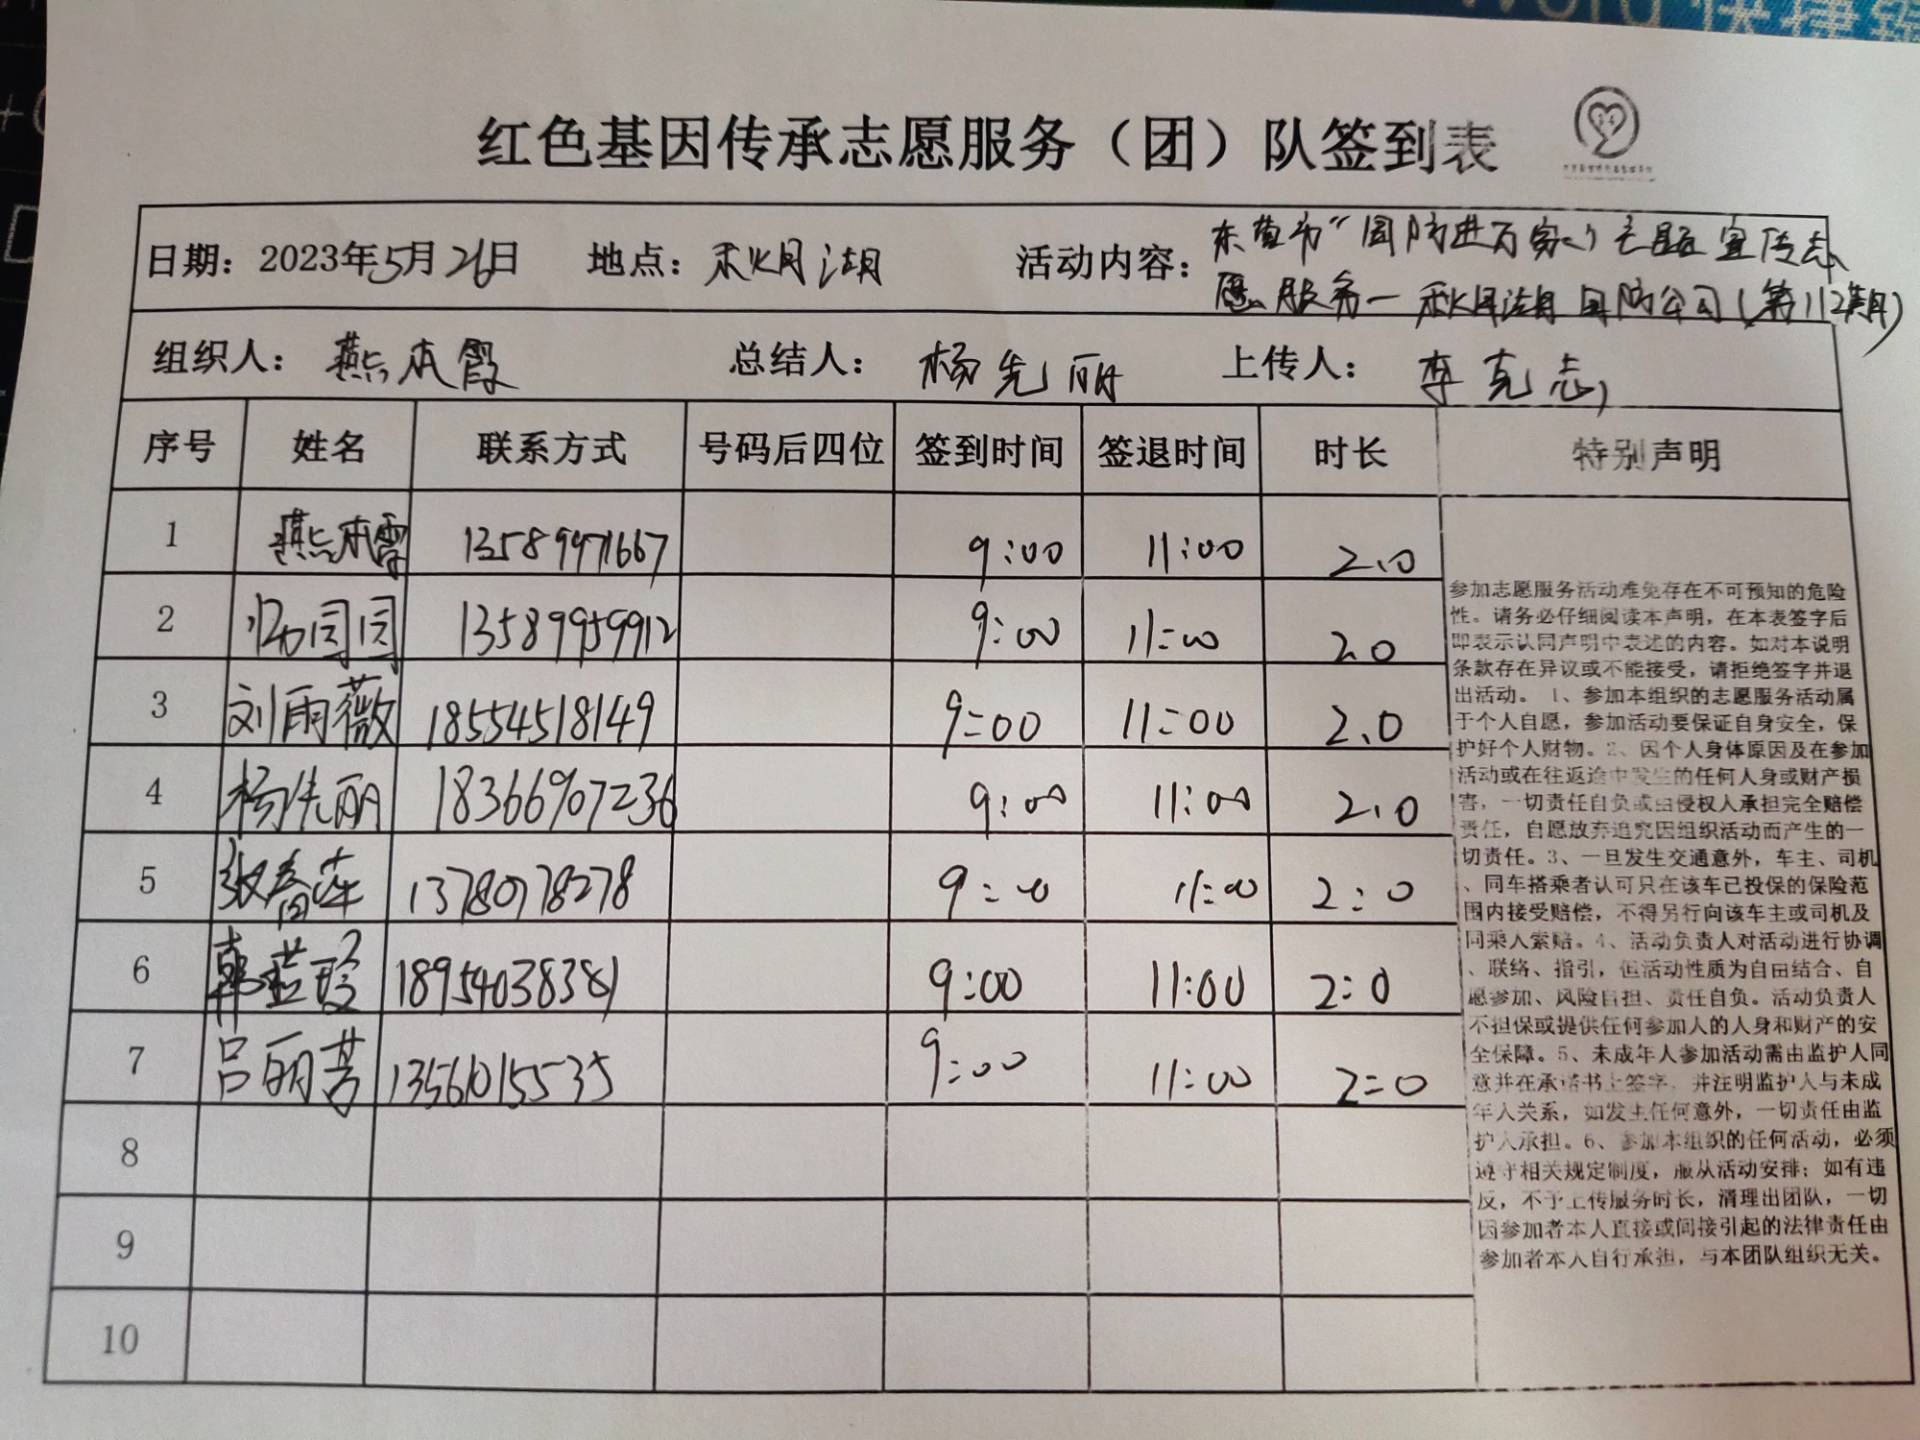 红色基因传承志愿服务（团）队签到表
日期：2023年5月26日 地点：秋月湖 活动内容：东营市“国防进万家”主题宣传志
愿服务—秋月湖国防公司(第112期)
组织人：燕本霞 总结人：杨先丽 上传人：李克志
序号 姓名 联系方式 号码后四位 签到时间 签退时间 时长 特别声明
1 燕本霞 13589971667 9:00 11:00 2.0
2 闫闫 13589959912 9:00 11:00 2.0
3 刘雨薇 18554518149 9:00 11:00 2.0
4 杨先丽 18366907236 9:00 11:00 2.0
5 张春萍 13780778278 9:00 11:00 2:0
6 韩芸玲 18954038381 9:00 11:00 2:0
7 吕丽芳 13561015535 9:00 11:00 2:0
8
9
10
参加志愿服务活动难免存在不可预知的危险
性。请务必仔细阅读本声明，在本表签字后
即表示认同声明中表述的内容。如对本说明
条款存在异议或不能接受，请拒绝签字并退
出活动。 1、参加本组织的志愿服务活动属
于个人自愿，参加活动要保证自身安全，保
护好个人财物。2、因个人身体原因及在参加
活动或在往返途中发生的任何人身或财产损
害，一切责任自负或由侵权人承担完全赔偿
责任，自愿放弃追究因组织活动而产生的一
切责任。3、一旦发生交通意外，车主、司机
、同车搭乘者认可只在该车已投保的保险范
围内接受赔偿，不得另行向该车主或司机及
同乘人索赔。4、活动负责人对活动进行协调
、联络、指引，但活动性质为自由结合、自
愿参加、风险自担、责任自负。活动负责人
不担保或提供任何参加人的人身和财产的安
全保障。5、未成年人参加活动需由监护人同
意并在承诺书上签字，并注明监护人与未成
年人关系，如发生任何意外，一切责任由监
护人承担。6、参加本组织的任何活动，必须
遵守相关规定制度，服从活动安排；如有违
反，不予上传服务时长，清理出团队，一切
因参加者本人直接或间接引起的法律责任由
参加者本人自行承担，与本团队组织无关。